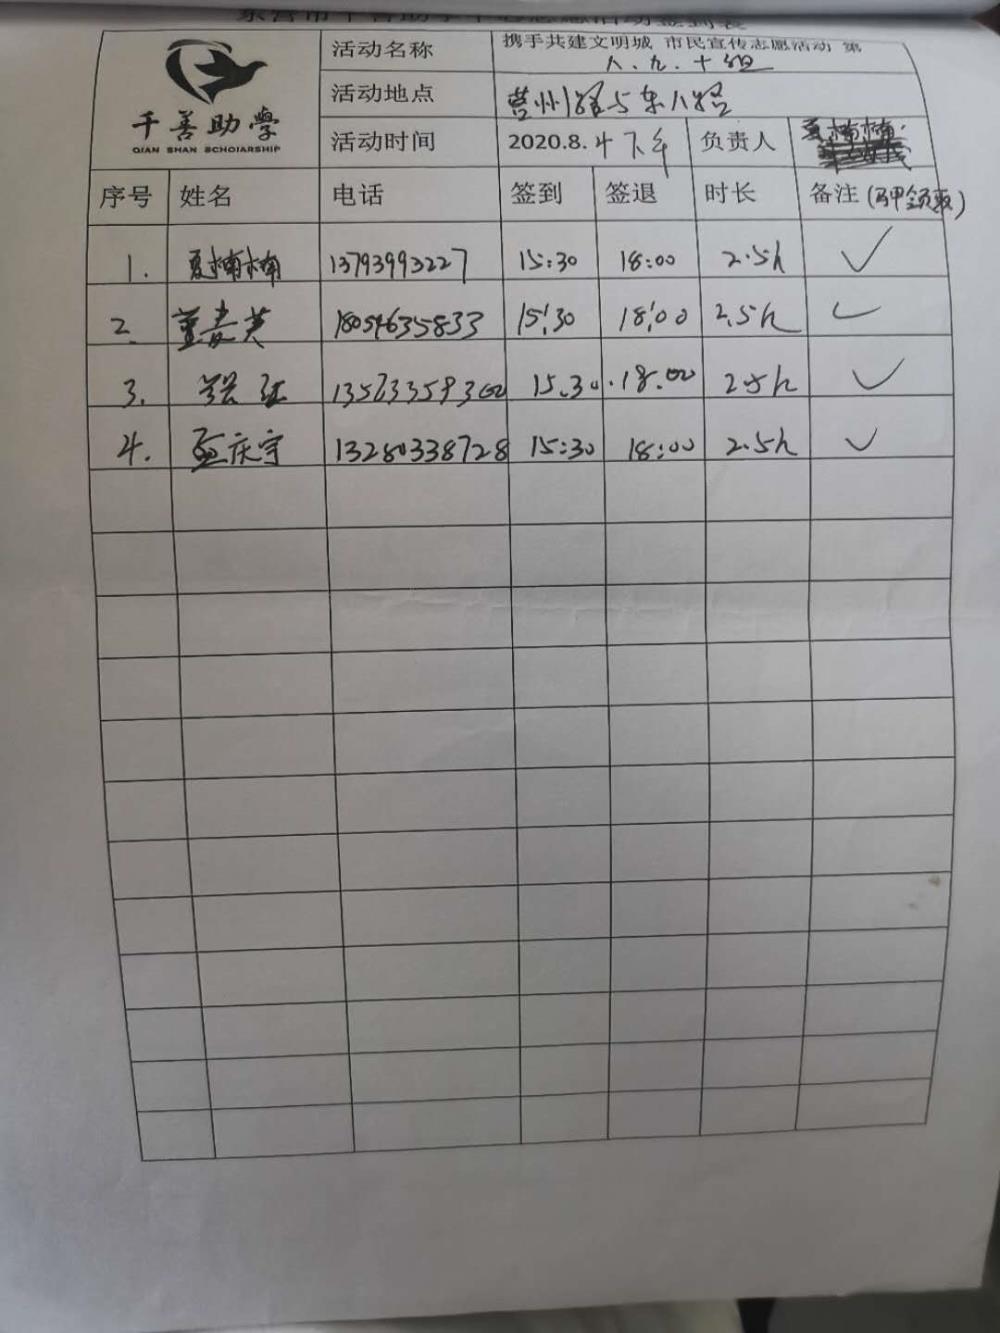 东营市千善助学中心志愿活动签到表
千善助学
QIAN SHAN SCHOLARSHIP
活动名称 携手共建文明城 市民宣传志愿活动 第
八、九、十组
活动地点 营州路与东八路
活动时间 2020.8.4下午 负责人 夏楠楠
序号 姓名 电话 签到 签退 时长 备注(马甲领取)
1. 夏楠楠 13793993227 15:30 18:00 2.5h ✓
2. 董麦英 18054635833 15:30 18:00 2.5h ✓
3. 13563359302 15.30 18.00 2.5h ✓
4. 孟庆宇 13280338728 15:30 18:00 2.5h ✓